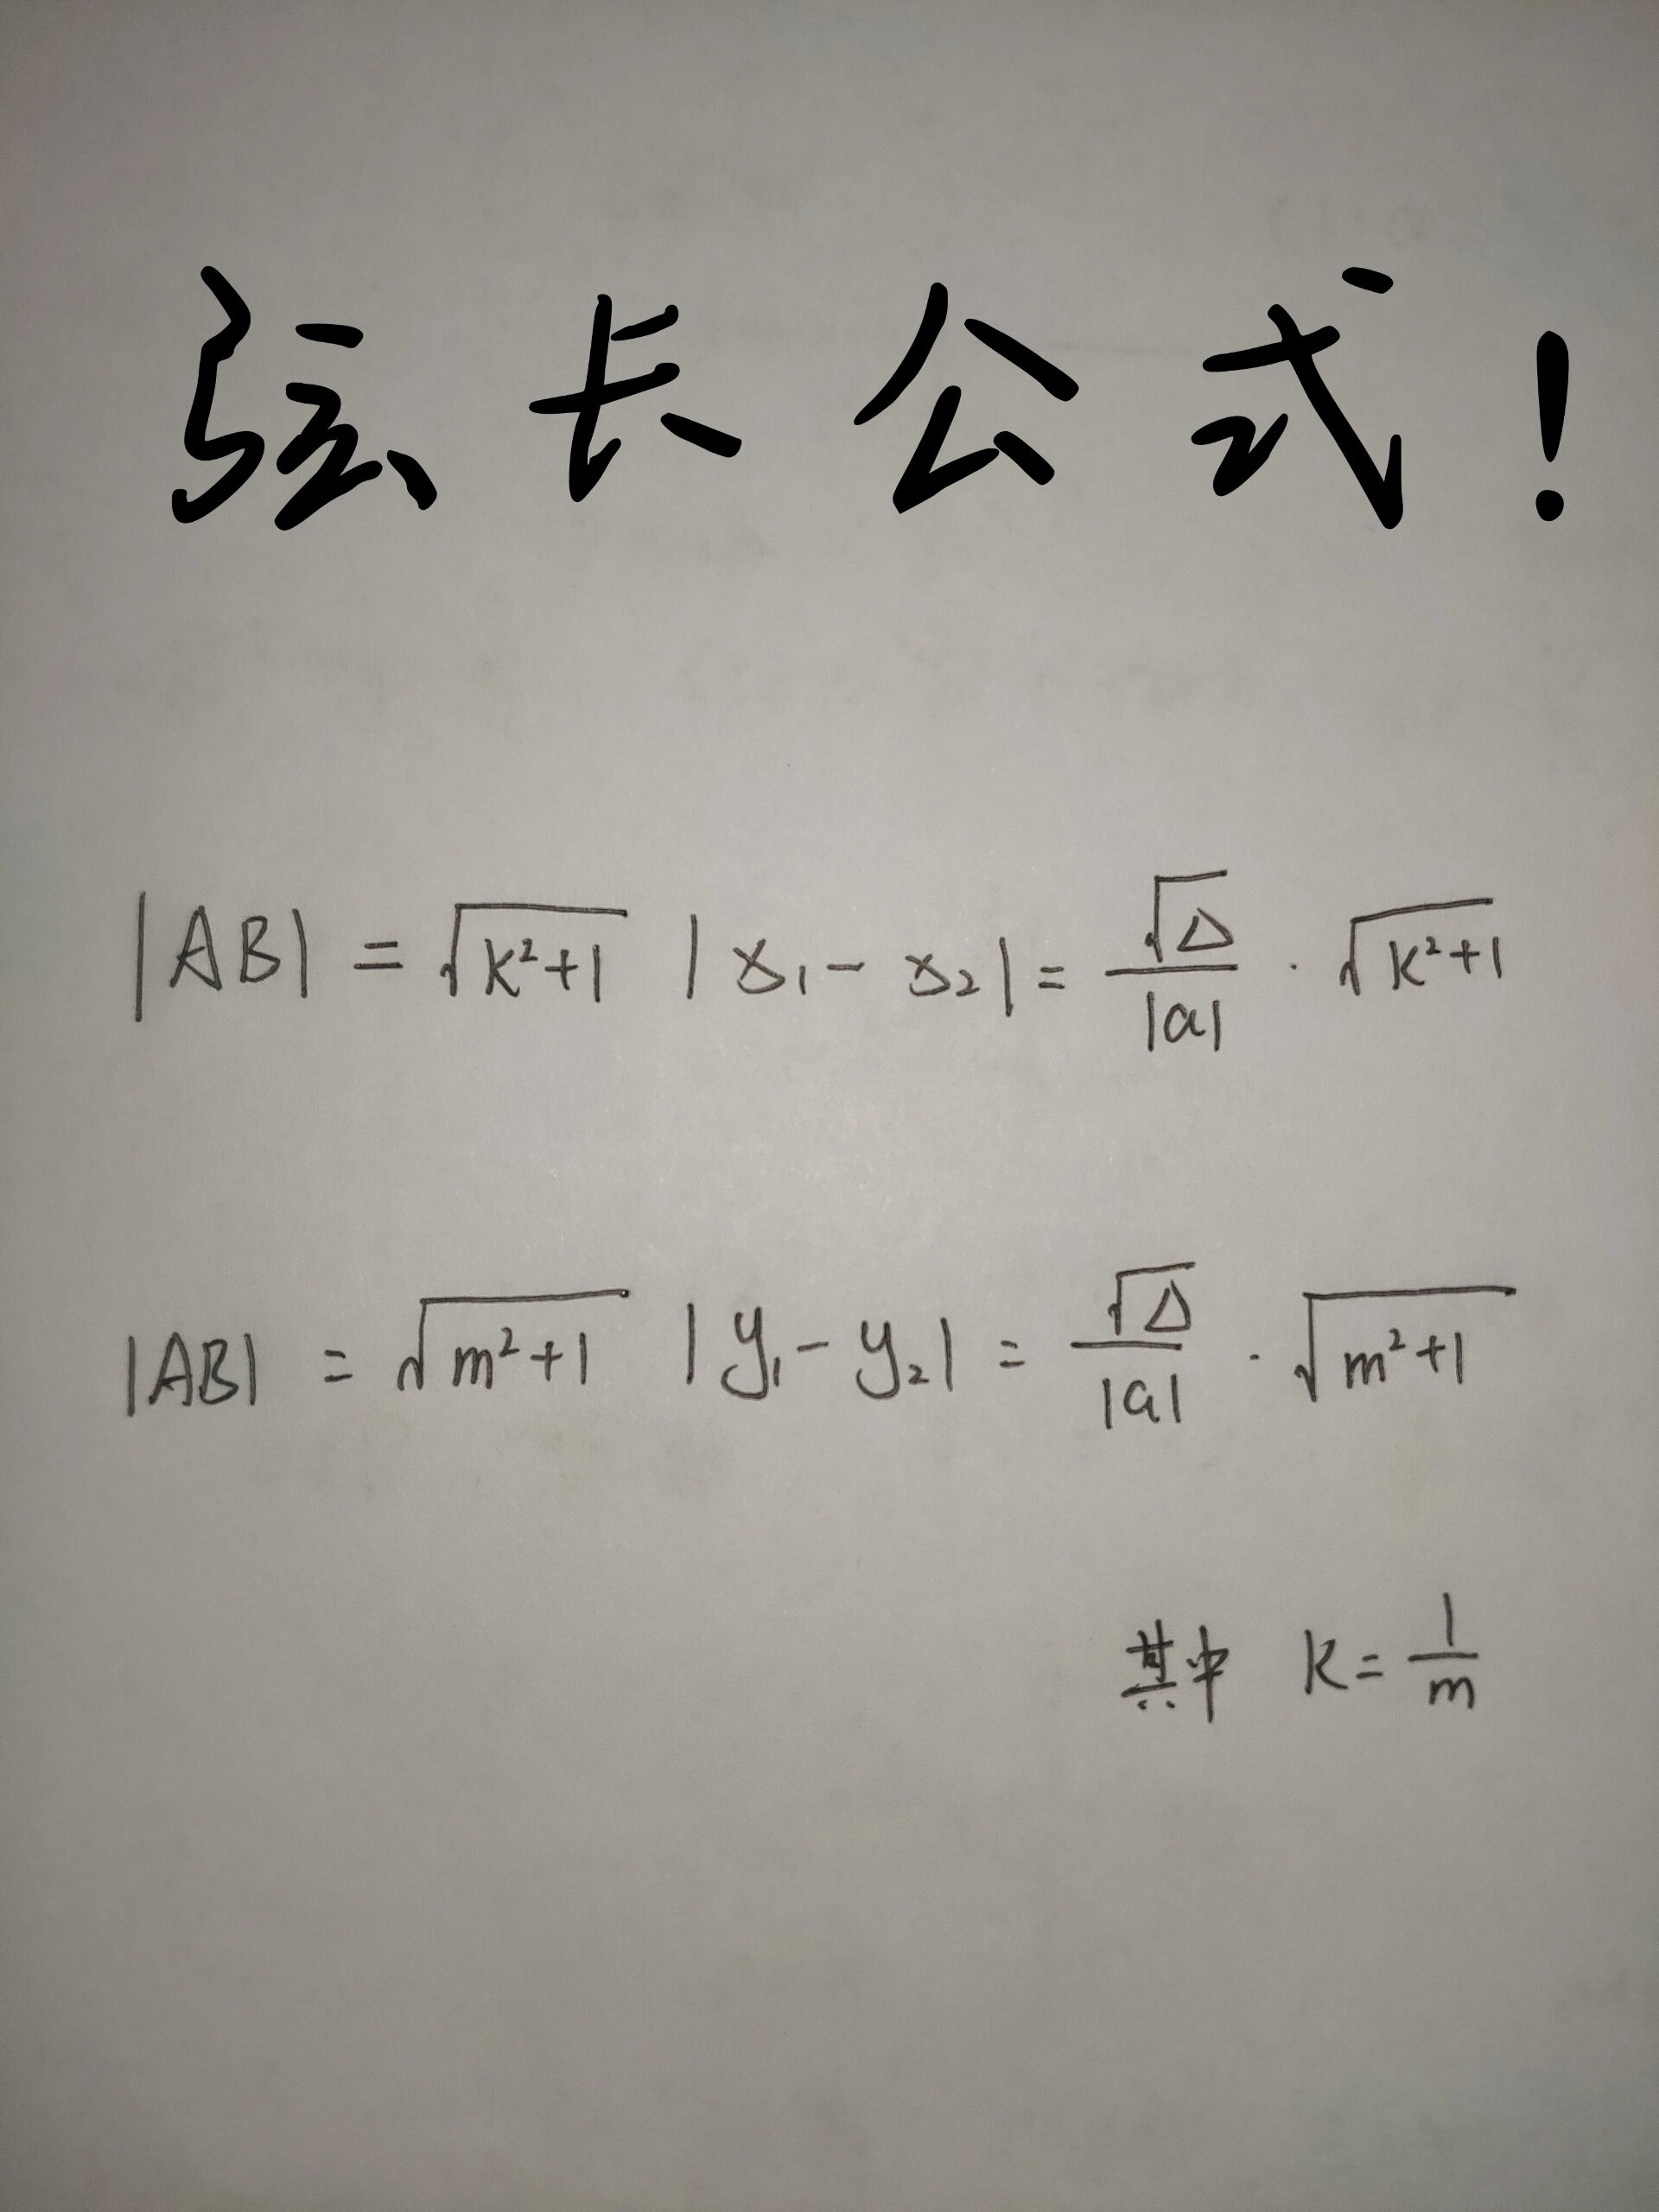 弦长公式!
|AB| = √(k²+1) |x₁-x₂| = √Δ/|a| · √(k²+1)
|AB| = √(m²+1) |y₁-y₂| = √Δ/|a| · √(m²+1)
其中 k=1/m